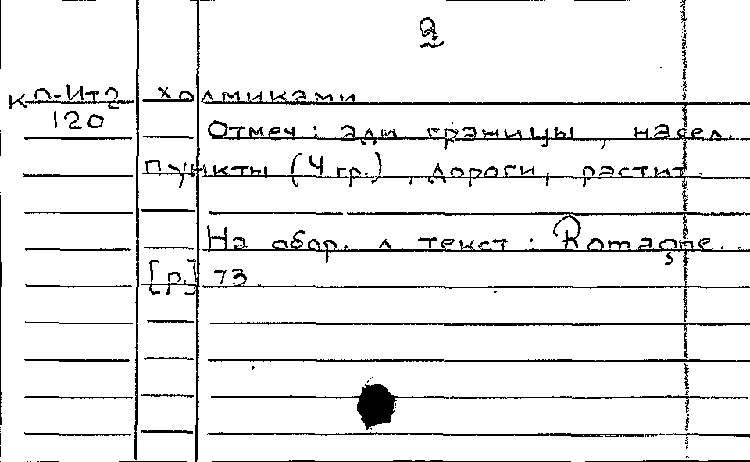 2
Кп-Ит2 холмиками
120
Отмеч: адм границы, насел.
пункты (4 гр.), дороги, растит.
На обор. л текст: Romagne.
[р.] 73.